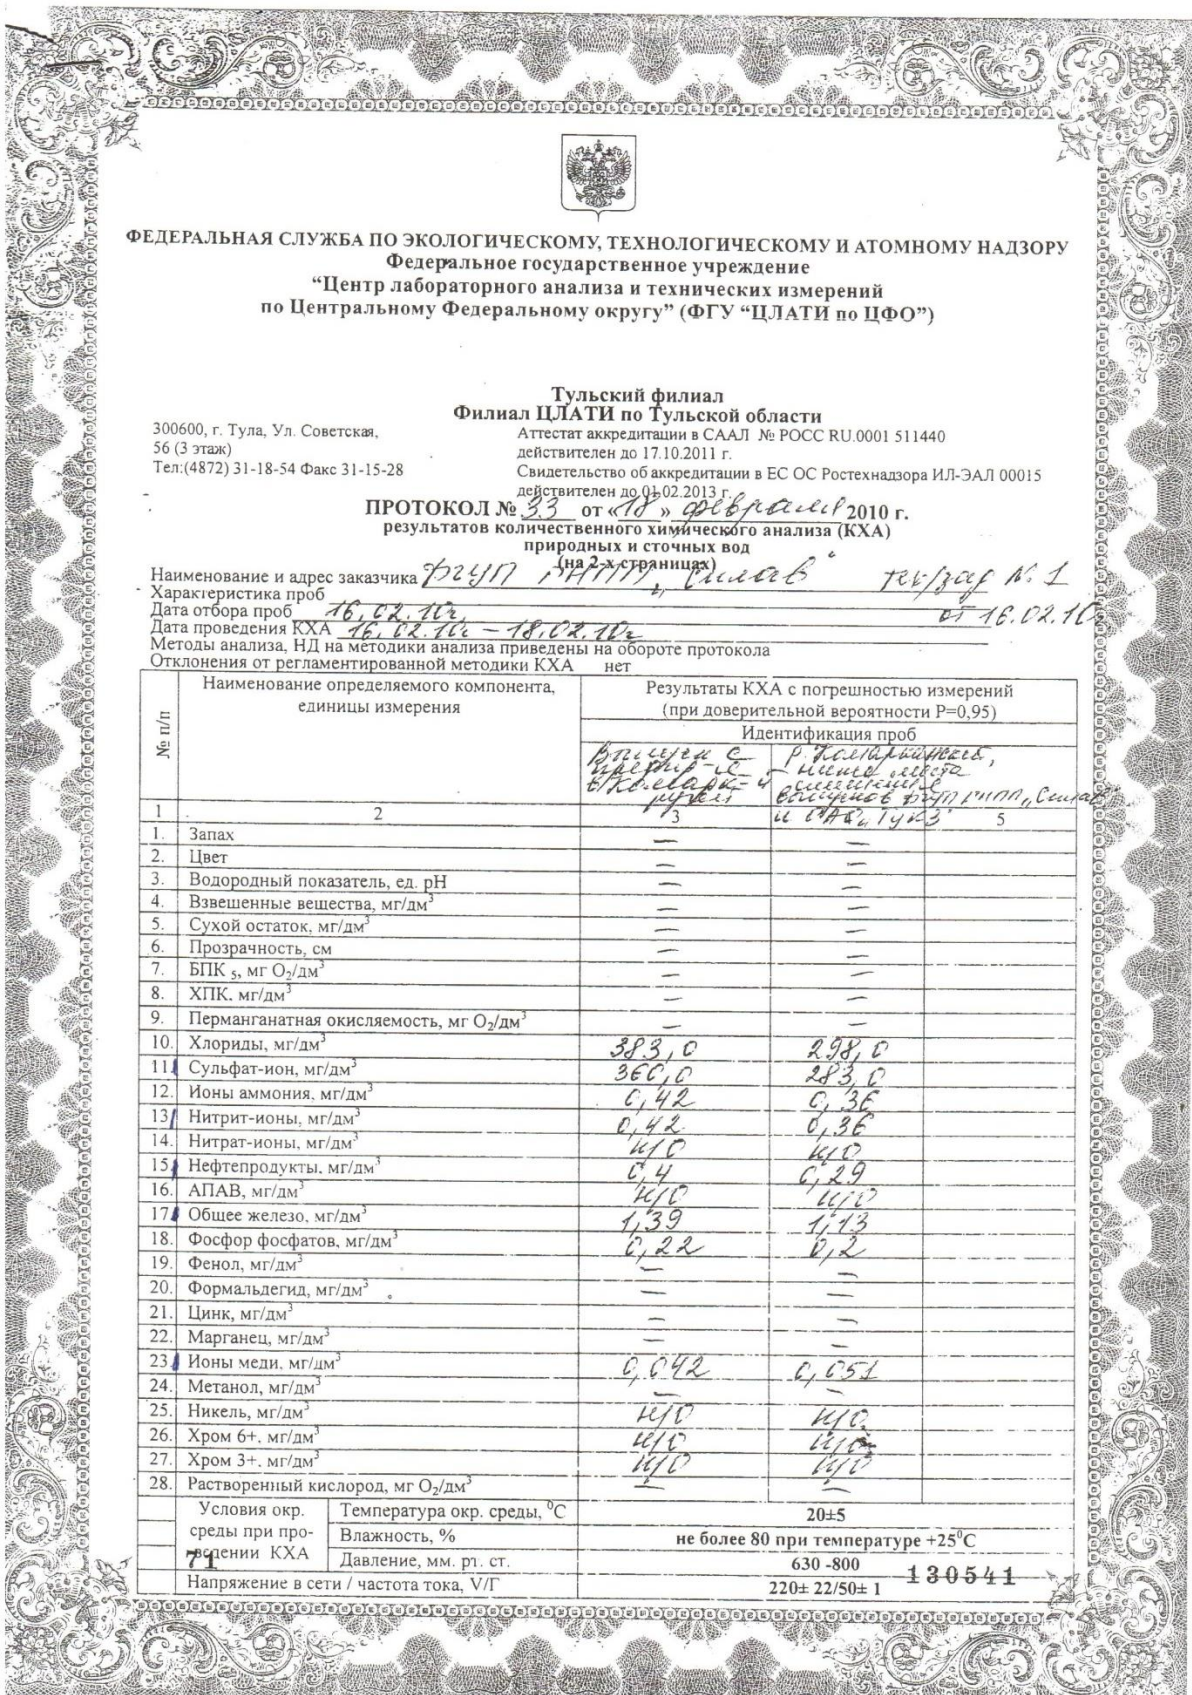 ФЕДЕРАЛЬНАЯ СЛУЖБА ПО ЭКОЛОГИЧЕСКОМУ, ТЕХНОЛОГИЧЕСКОМУ И АТОМНОМУ НАДЗОРУ
Федеральное государственное учреждение
“Центр лабораторного анализа и технических измерений
по Центральному Федеральному округу” (ФГУ “ЦЛАТИ по ЦФО”)
Тульский филиал
Филиал ЦЛАТИ по Тульской области
300600, г. Тула, Ул. Советская,
56 (3 этаж)
Тел:(4872) 31-18-54 Факс 31-15-28
Аттестат аккредитации в СААЛ № РОСС RU.0001 511440
действителен до 17.10.2011 г.
Свидетельство об аккредитации в ЕС ОС Ростехнадзора ИЛ-ЭАЛ 00015
действителен до 01.02.2013 г.
ПРОТОКОЛ № 33 от «18» февраля 2010 г.
результатов количественного химического анализа (КХА)
природных и сточных вод
(на 2-х страницах)
Наименование и адрес заказчика ФГУП ГНПП „Сплав“ тех/зад № 1
Характеристика проб от 16.02.10г
Дата отбора проб 16.02.10г.
Дата проведения КХА 16.02.10г – 18.02.10г
Методы анализа, НД на методики анализа приведены на обороте протокола
Отклонения от регламентированной методики КХА нет
№ п/п
Наименование определяемого компонента,
единицы измерения
Результаты КХА с погрешностью измерений
(при доверительной вероятности Р=0,95)
Идентификация проб
Выпуск с
ручей
ниже места
выпусков ФГУП ГНПП „Сплав“
1 2 3 5
1. Запах — —
2. Цвет — —
3. Водородный показатель, ед. рН — —
4. Взвешенные вещества, мг/дм³ — —
5. Сухой остаток, мг/дм³ — —
6. Прозрачность, см — —
7. БПК ₅, мг О₂/дм³ — —
8. ХПК. мг/дм³ — —
9. Перманганатная окисляемость, мг О₂/дм³ — —
10. Хлориды, мг/дм³ 383,0 298,0
11. Сульфат-ион, мг/дм³ 360,0 283,0
12. Ионы аммония, мг/дм³ 0,42 0,36
13. Нитрит-ионы, мг/дм³ 0,42 0,36
14. Нитрат-ионы, мг/дм³ н/о н/о
15. Нефтепродукты. мг/дм³ 0,4 0,29
16. АПАВ, мг/дм³ н/о н/о
17. Общее железо, мг/дм³ 1,39 1,13
18. Фосфор фосфатов, мг/дм³ 0,22 0,2
19. Фенол, мг/дм³ — —
20. Формальдегид, мг/дм³ — —
21. Цинк, мг/дм³ — —
22. Марганец, мг/дм³ — —
23. Ионы меди, мг/дм³ 0,042 0,051
24. Метанол, мг/дм³ — —
25. Никель, мг/дм³ н/о н/о
26. Хром 6+. мг/дм³ н/о н/о
27. Хром 3+. мг/дм³ н/о н/о
28. Растворенный кислород, мг О₂/дм³ — —
Условия окр.
среды при про-
ведении КХА
Температура окр. среды, ⁰С 20±5
Влажность, % не более 80 при температуре +25⁰С
Давление, мм. рт. ст. 630 -800
71
130541
Напряжение в сети / частота тока, V/Г 220± 22/50± 1